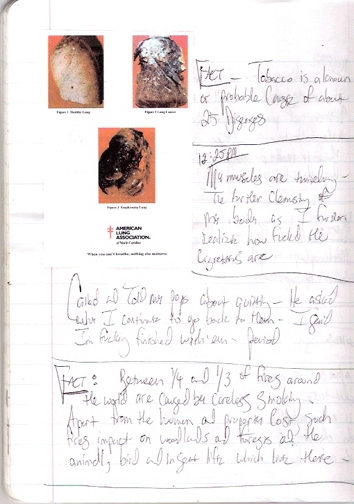 Figure 1 Healthy Lung
Figure 3 Lung Cancer
Figure 2 Emphysema Lung
AMERICAN
LUNG
ASSOCIATION.
of North Carolina
When you can't breathe, nothing else matters.
FACT – Tobacco is a known
or probable cause of about
25 Diseases
12:25PM
My muscles are twitching –
The further cleansing of
my body as I further
realize how fucked the
cigarettes are
Called and told my pops about quitting – He asked
why I continue to go back to them – I said
I'm fucking finished with 'em – period
FACT: Between 1/4 and 1/3 of fires around
the world are caused by careless smoking –
Apart from the human and properties lost such
fires impact on woodlands and forests and the
animal, bird and insect life which live there –